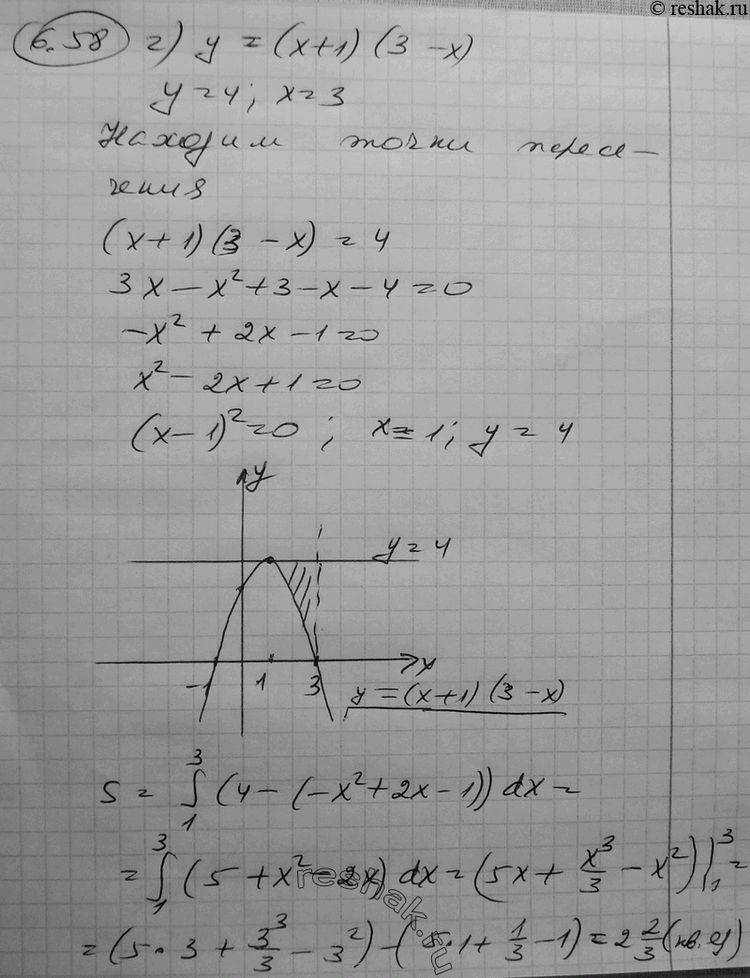 © reshak.ru
6.58 г) y = (x+1) (3 - x)
y = 4; x = 3
Находим точки пересе-
чения
(x + 1) (3 - x) = 4
3x - x² + 3 - x - 4 = 0
-x² + 2x - 1 = 0
x² - 2x + 1 = 0
(x - 1)² = 0 ; x = 1; y = 4
y
y = 4
x
-1 1 3
y = (x+1) (3 - x)
S = ∫₁³ (4 - (-x² + 2x - 1)) dx =
= ∫₁³ (5 + x² - 2x) dx = (5x + x³/3 - x²)|₁³ =
= (5 · 3 + 3³/3 - 3²) - (5·1 + 1/3 - 1) = 2 2/3 (кв. ед)
reshak.ru